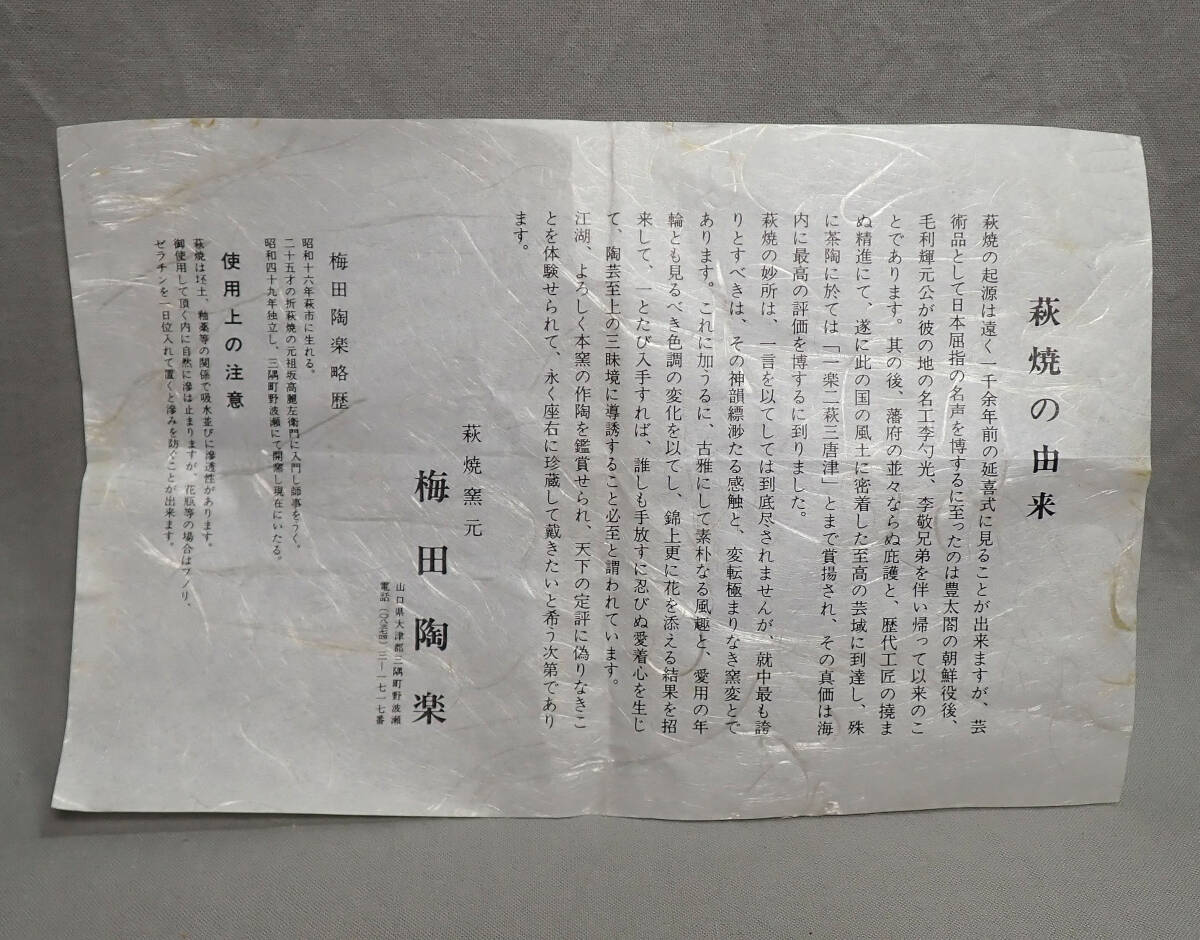 萩焼の由来
萩焼の起源は遠く一千余年前の延喜式に見ることが出来ますが、芸
術品として日本屈指の名声を博するに至ったのは豊太閤の朝鮮役後、
毛利輝元公が彼の地の名工李勺光、李敬兄弟を伴い帰って以来のこ
とであります。其の後、藩府の並々ならぬ庇護と、歴代工匠の撓ま
ぬ精進にて、遂に此の国の風土に密着した至高の芸域に到達し、殊
に茶陶に於ては「一楽二萩三唐津」とまで賞揚され、その真価は海
内に最高の評価を博するに到りました。
萩焼の妙所は、一言を以てしては到底尽されませんが、就中最も誇
りとすべきは、その神韻縹渺たる感触と、変転極まりなき窯変とで
あります。これに加うるに、古雅にして素朴なる風趣と、愛用の年
輪とも見るべき色調の変化を以てし、錦上更に花を添える結果を招
来して、一とたび入手すれば、誰しも手放すに忍びぬ愛着心を生じ
て、陶芸至上の三昧境に導誘すること必至と謂われています。
江湖、よろしく本窯の作陶を鑑賞せられ、天下の定評に偽りなきこ
とを体験せられて、永く座右に珍蔵して戴きたいと希う次第であり
ます。
萩焼窯元
梅田陶楽
山口県大津郡三隅町野波瀬
電話 三―一七一七番
梅田陶楽略歴
昭和十六年萩市に生れる。
二十五才の折萩焼の元祖坂高麗左衛門に入門し師事をうく。
昭和四十九年独立し、三隅町野波瀬にて開窯し現在にいたる。
使用上の注意
萩焼は坯土、釉薬等の関係で吸水並びに滲透性があります。
御使用して頂く内に自然に滲は止まりますが、花瓶等の場合はフノリ、
ゼラチンを一日位入れて置くと滲みを防ぐことが出来ます。